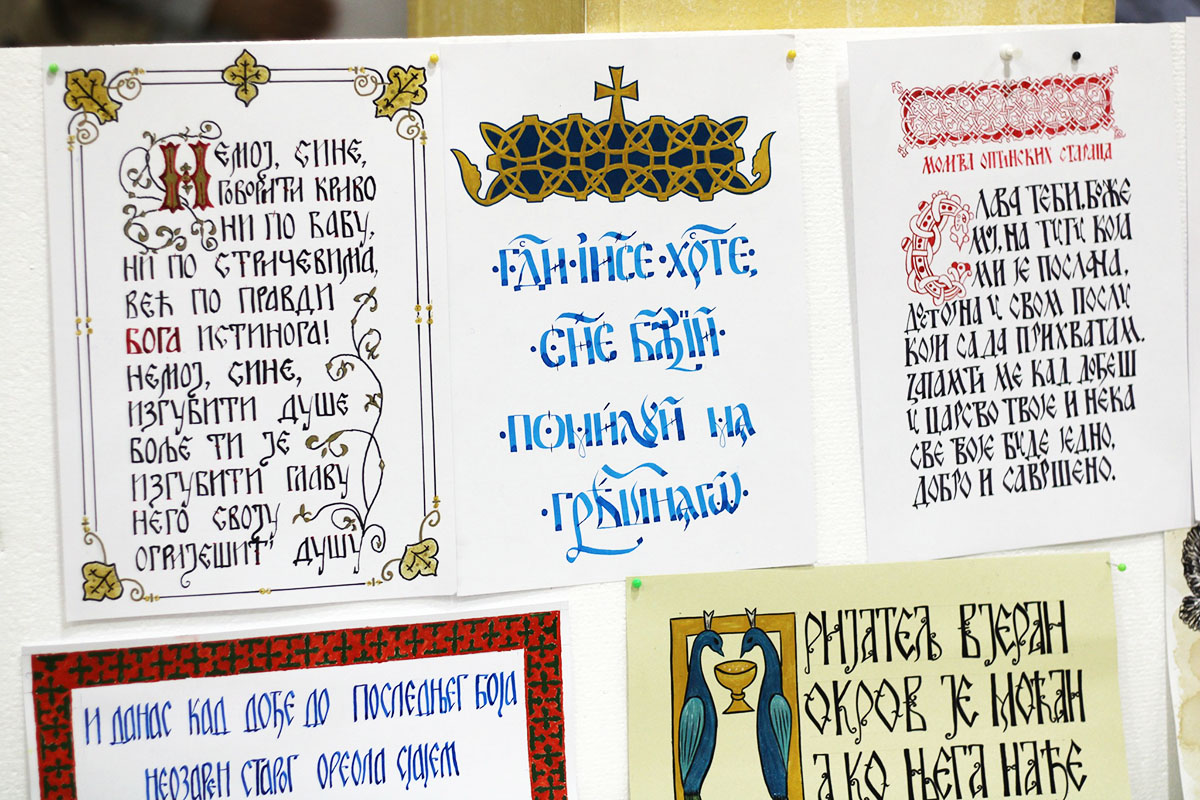 НЕМОЈ, СИНЕ,
ГОВОРИТИ КРИВО
НИ ПО БАБУ,
НИ ПО СТРИЧЕВИМА,
ВЕЋ ПО ПРАВДИ
БОГА ИСТИНОГА!
НЕМОЈ, СИНЕ,
ИЗГУБИТИ ДУШЕ
БОЉЕ ТИ ЈЕ
ИЗГУБИТИ ГЛАВУ
НЕГО СВОЈУ
ОГРИЈЕШИТ' ДУШУ
·ГДИ·ІИСЕ·ХРТЕ;
·СНЕ БЖІЙ·
·ПОМИЛУЙ НА
·ГРѢШНАГѠ·
МОЛИТВА ОПТИНСКИХ СТАРАЦА
СЛАВА ТЕБИ, БОЖЕ
МОЈ, НА ТУГУ КОЈА
МИ ЈЕ ПОСЛАНА.
ДОСТОЈНА У СВОМ ПОСЛУ
КОЈИ САДА ПРИХВАТАМ.
ЗАПАМТИ МЕ КАД ДОЂЕШ
У ЦАРСТВО ТВОЈЕ И НЕКА
СВЕ ТВОЈЕ БУДЕ ЈЕДНО,
ДОБРО И САВРШЕНО.
И ДАНАС КАД ДОЂЕ ДО ПОСЛЕДЊЕГ БОЈА
НЕОЗАРЕН СТАРОГ ОРЕОЛА СЈАЈЕМ
РИЈАТЕЉ ВЈЕРАН
ОКРОВ ЈЕ МОЋАН
АКО ЊЕГА НАЂЕ